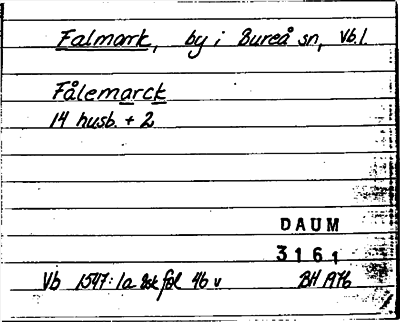 Falmark, by i Bureå sn, Vb.l.
Fålemarck
14 husb. + 2
DAUM
3161
Vb 1547:1a fol 46 v BH 1976